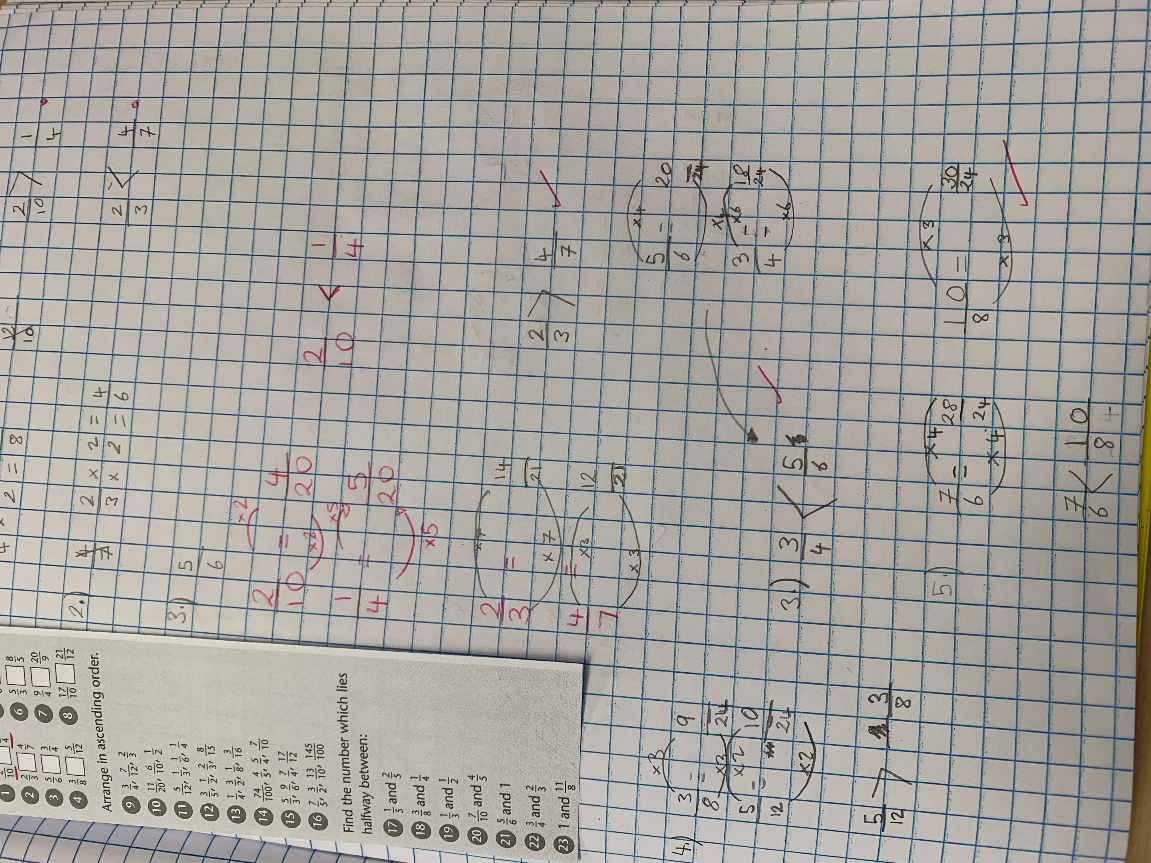 1 2/10 □ 1/4
2 2/3 □ 4/7
3 5/6 □ 3/4
4 3/8 □ 5/12
6 5/3 □ 8/5
7 9/4 □ 20/9
8 17/10 □ 21/12
Arrange in ascending order.
9 3/4, 7/12, 2/3
10 11/20, 6/10, 1/2
11 5/12, 1/3, 1/6, 1/4
12 3/5, 1/2, 2/3, 8/15
13 1/4, 3/2, 1/8, 3/16
14 74/100, 4/5, 3/4, 7/10
15 5/3, 9/6, 7/4, 17/12
16 7/5, 3/2, 13/10, 145/100
Find the number which lies
halfway between:
17 1/5 and 2/5
18 3/8 and 1/4
19 1/3 and 1/2
20 7/10 and 4/5
21 5/6 and 1
22 3/4 and 2/3
23 1 and 11/8
2/10 > 1/4
2/3 < 4/7
2.) 4/7 2/3 × 2/2 = 4/6
3.) 5/6
2/10 = 4/20 ×2 ×2
1/4 = 5/20 ×5 ×5
2/10 < 1/4
2/3 = 14/21 ×7 ×7
4/7 = 12/21 ×3 ×3
2/3 > 4/7
5/6 = 20/24 ×4 ×4
3/4 = 18/24 ×6 ×6
3.) 3/4 < 5/6
4.) 3/8 = 9/24 ×3 ×3
5/12 = 10/24 ×2 ×2
5/12 > 3/8
5.) 7/6 = 28/24 ×4 ×4
10/8 = 30/24 ×3 ×3
7/6 < 10/8